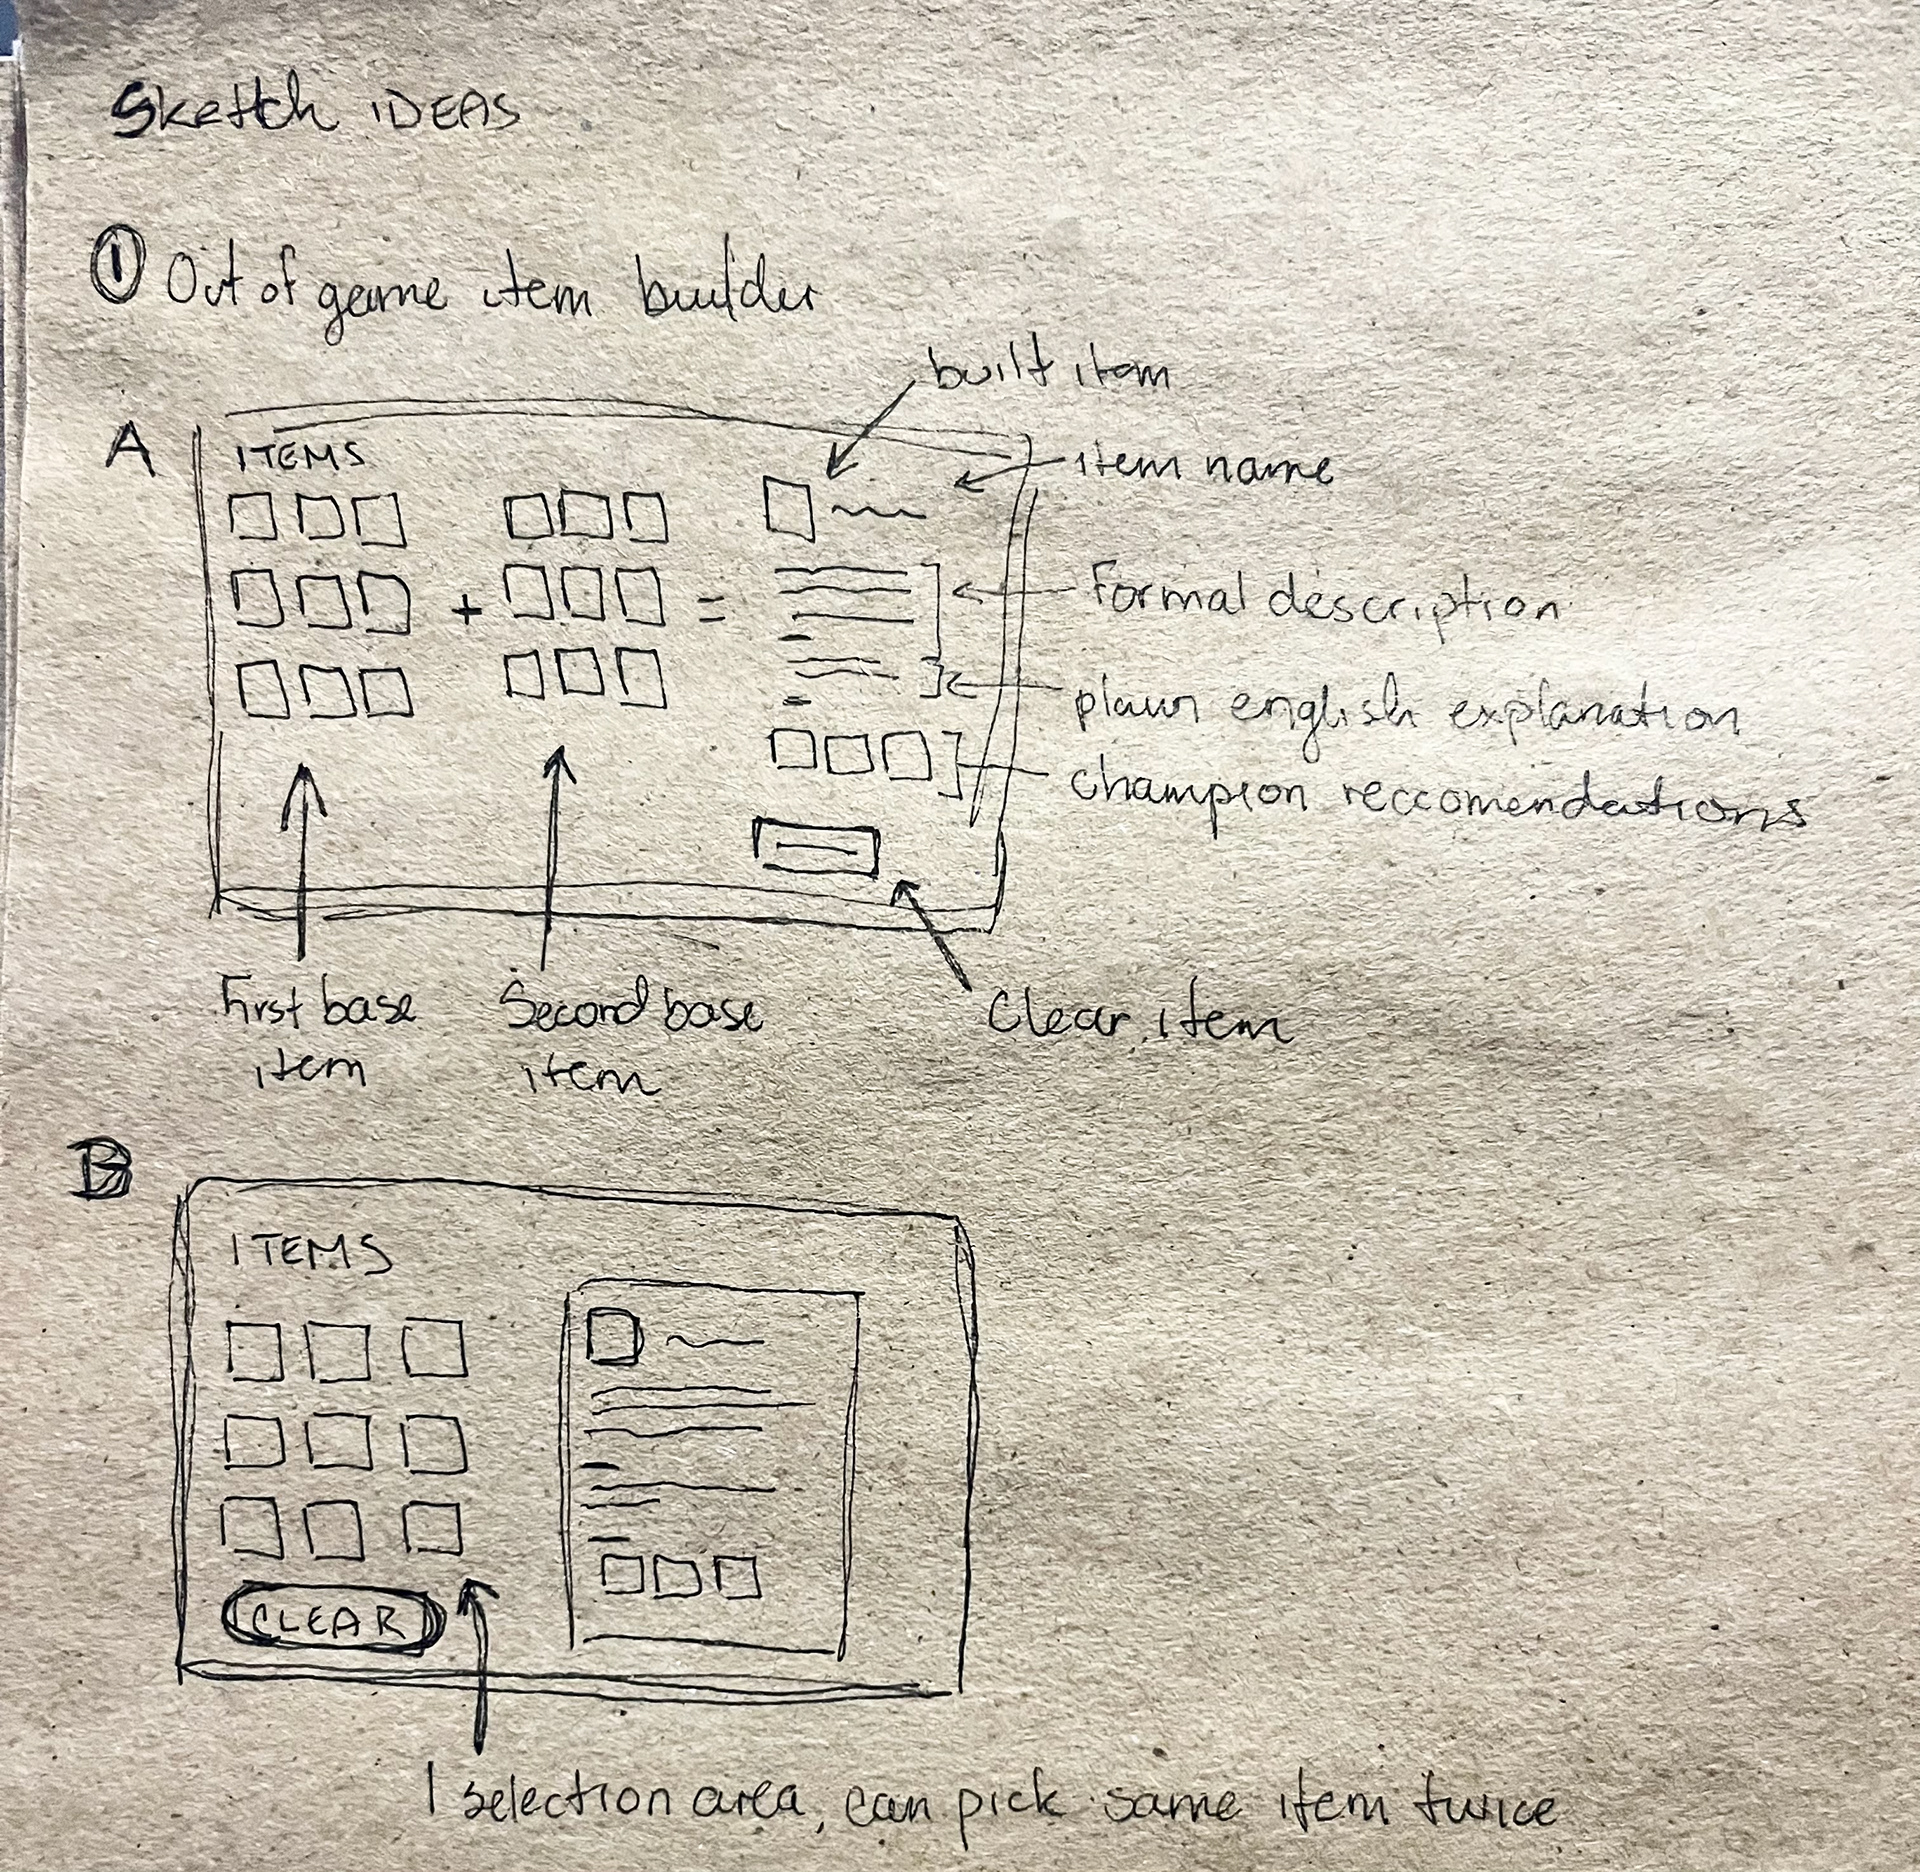 Sketch IDEAS
① Out of game item builder
built item
A
ITEMS
item name
+
=
Formal description
plain english explanation
champion reccomendations
First base
item
Second base
item
Clear item
B
ITEMS
CLEAR
1 selection area, can pick same item twice